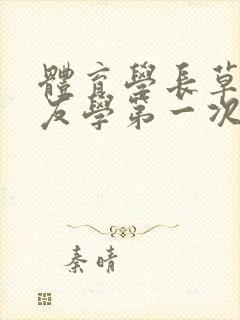 體育學長草
友學第一次
秦晴